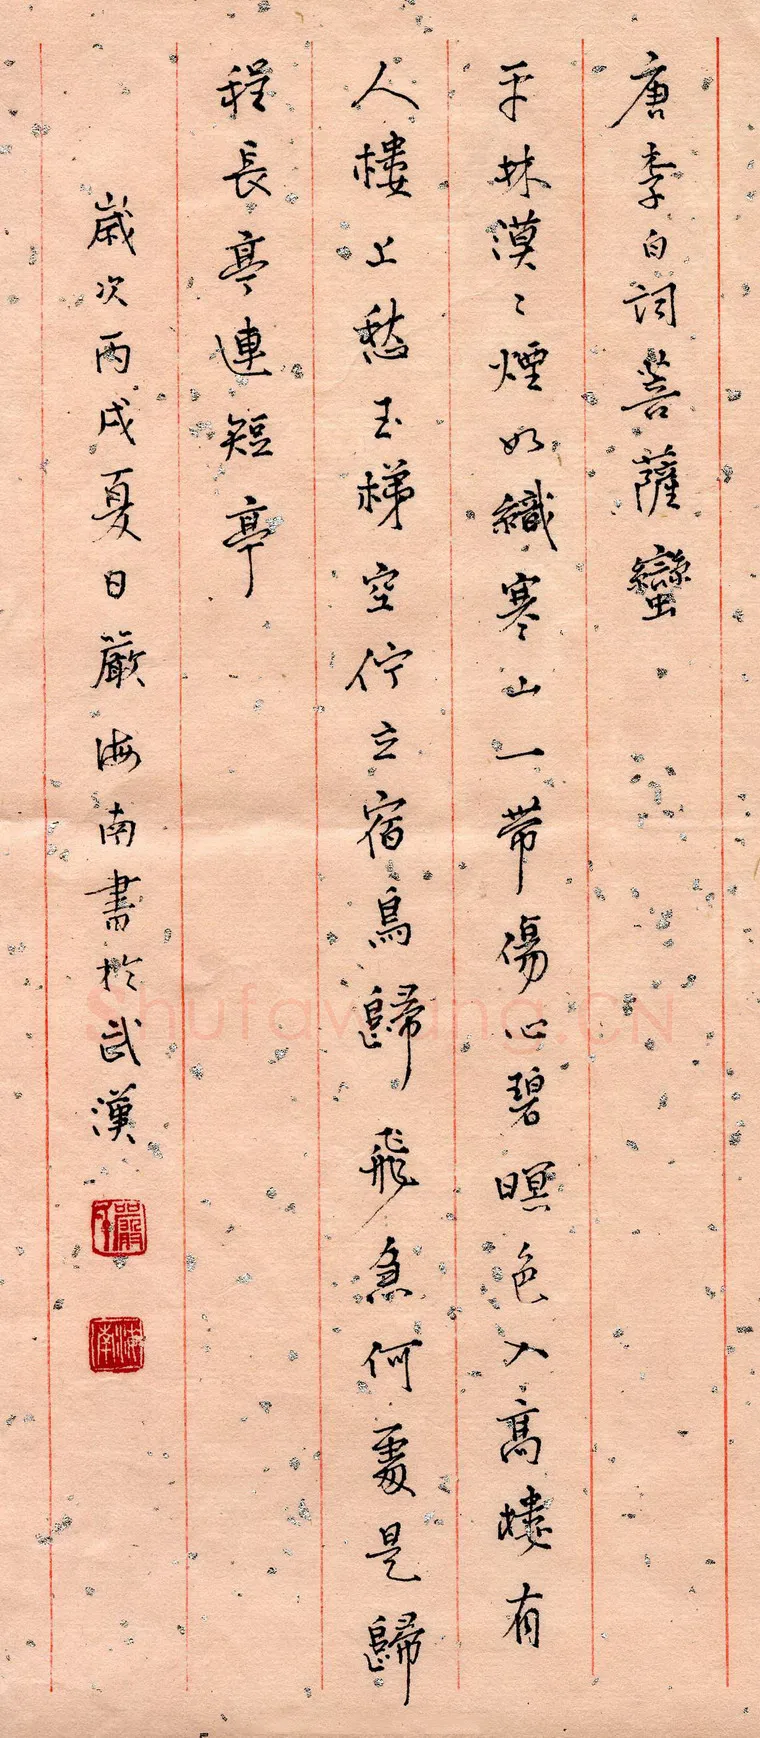 唐李白词菩薩蠻
平林漠〻煙如織寒山一帶傷心碧暝色入高樓有
人樓上愁玉梯空佇立宿鳥歸飛急何處是歸
程長亭連短亭
歲次丙戌夏日嚴海南書於武漢
嚴
海南
Shufawang.CN